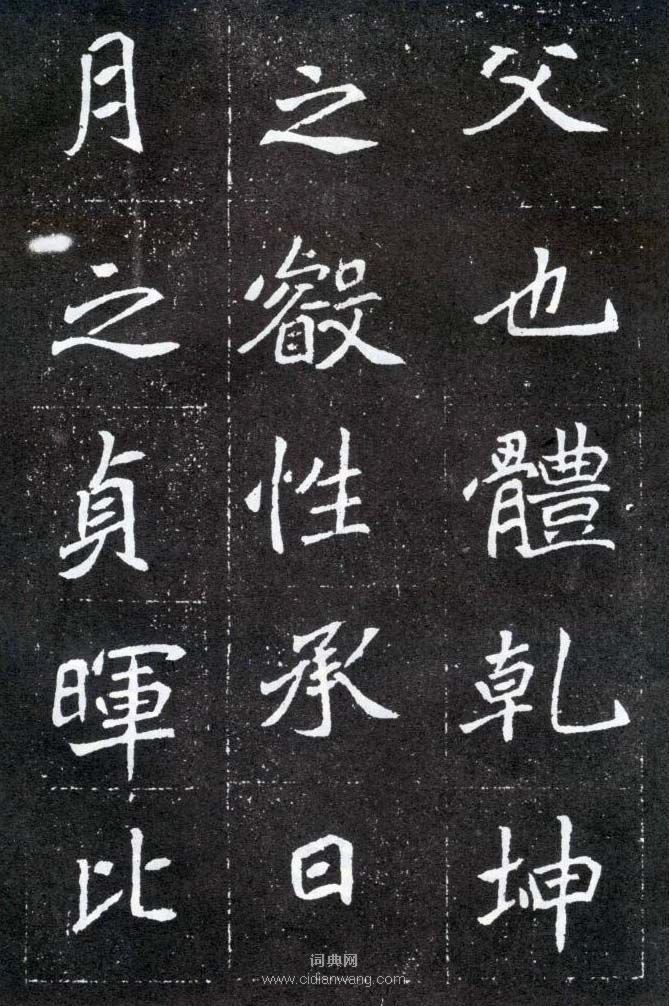 父也體乾坤
之叡性承日
月之貞暉比
词典网
www.cidianwang.com